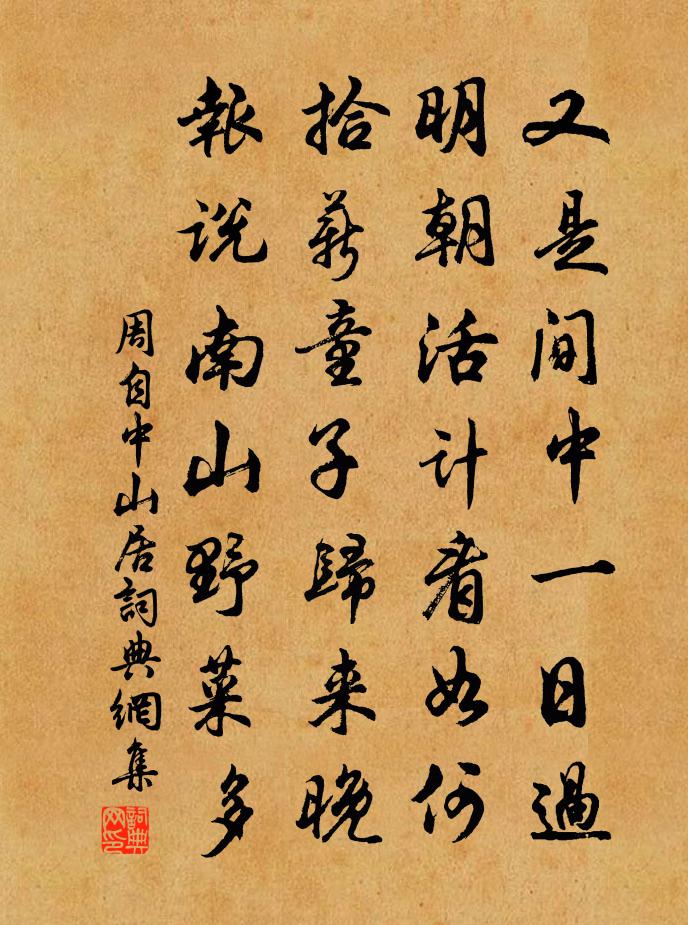 又是閒中一日過
明朝活計看如何
拾薪童子歸来晚
報説南山野菜多
周自中山居詞典網集
詞典网印